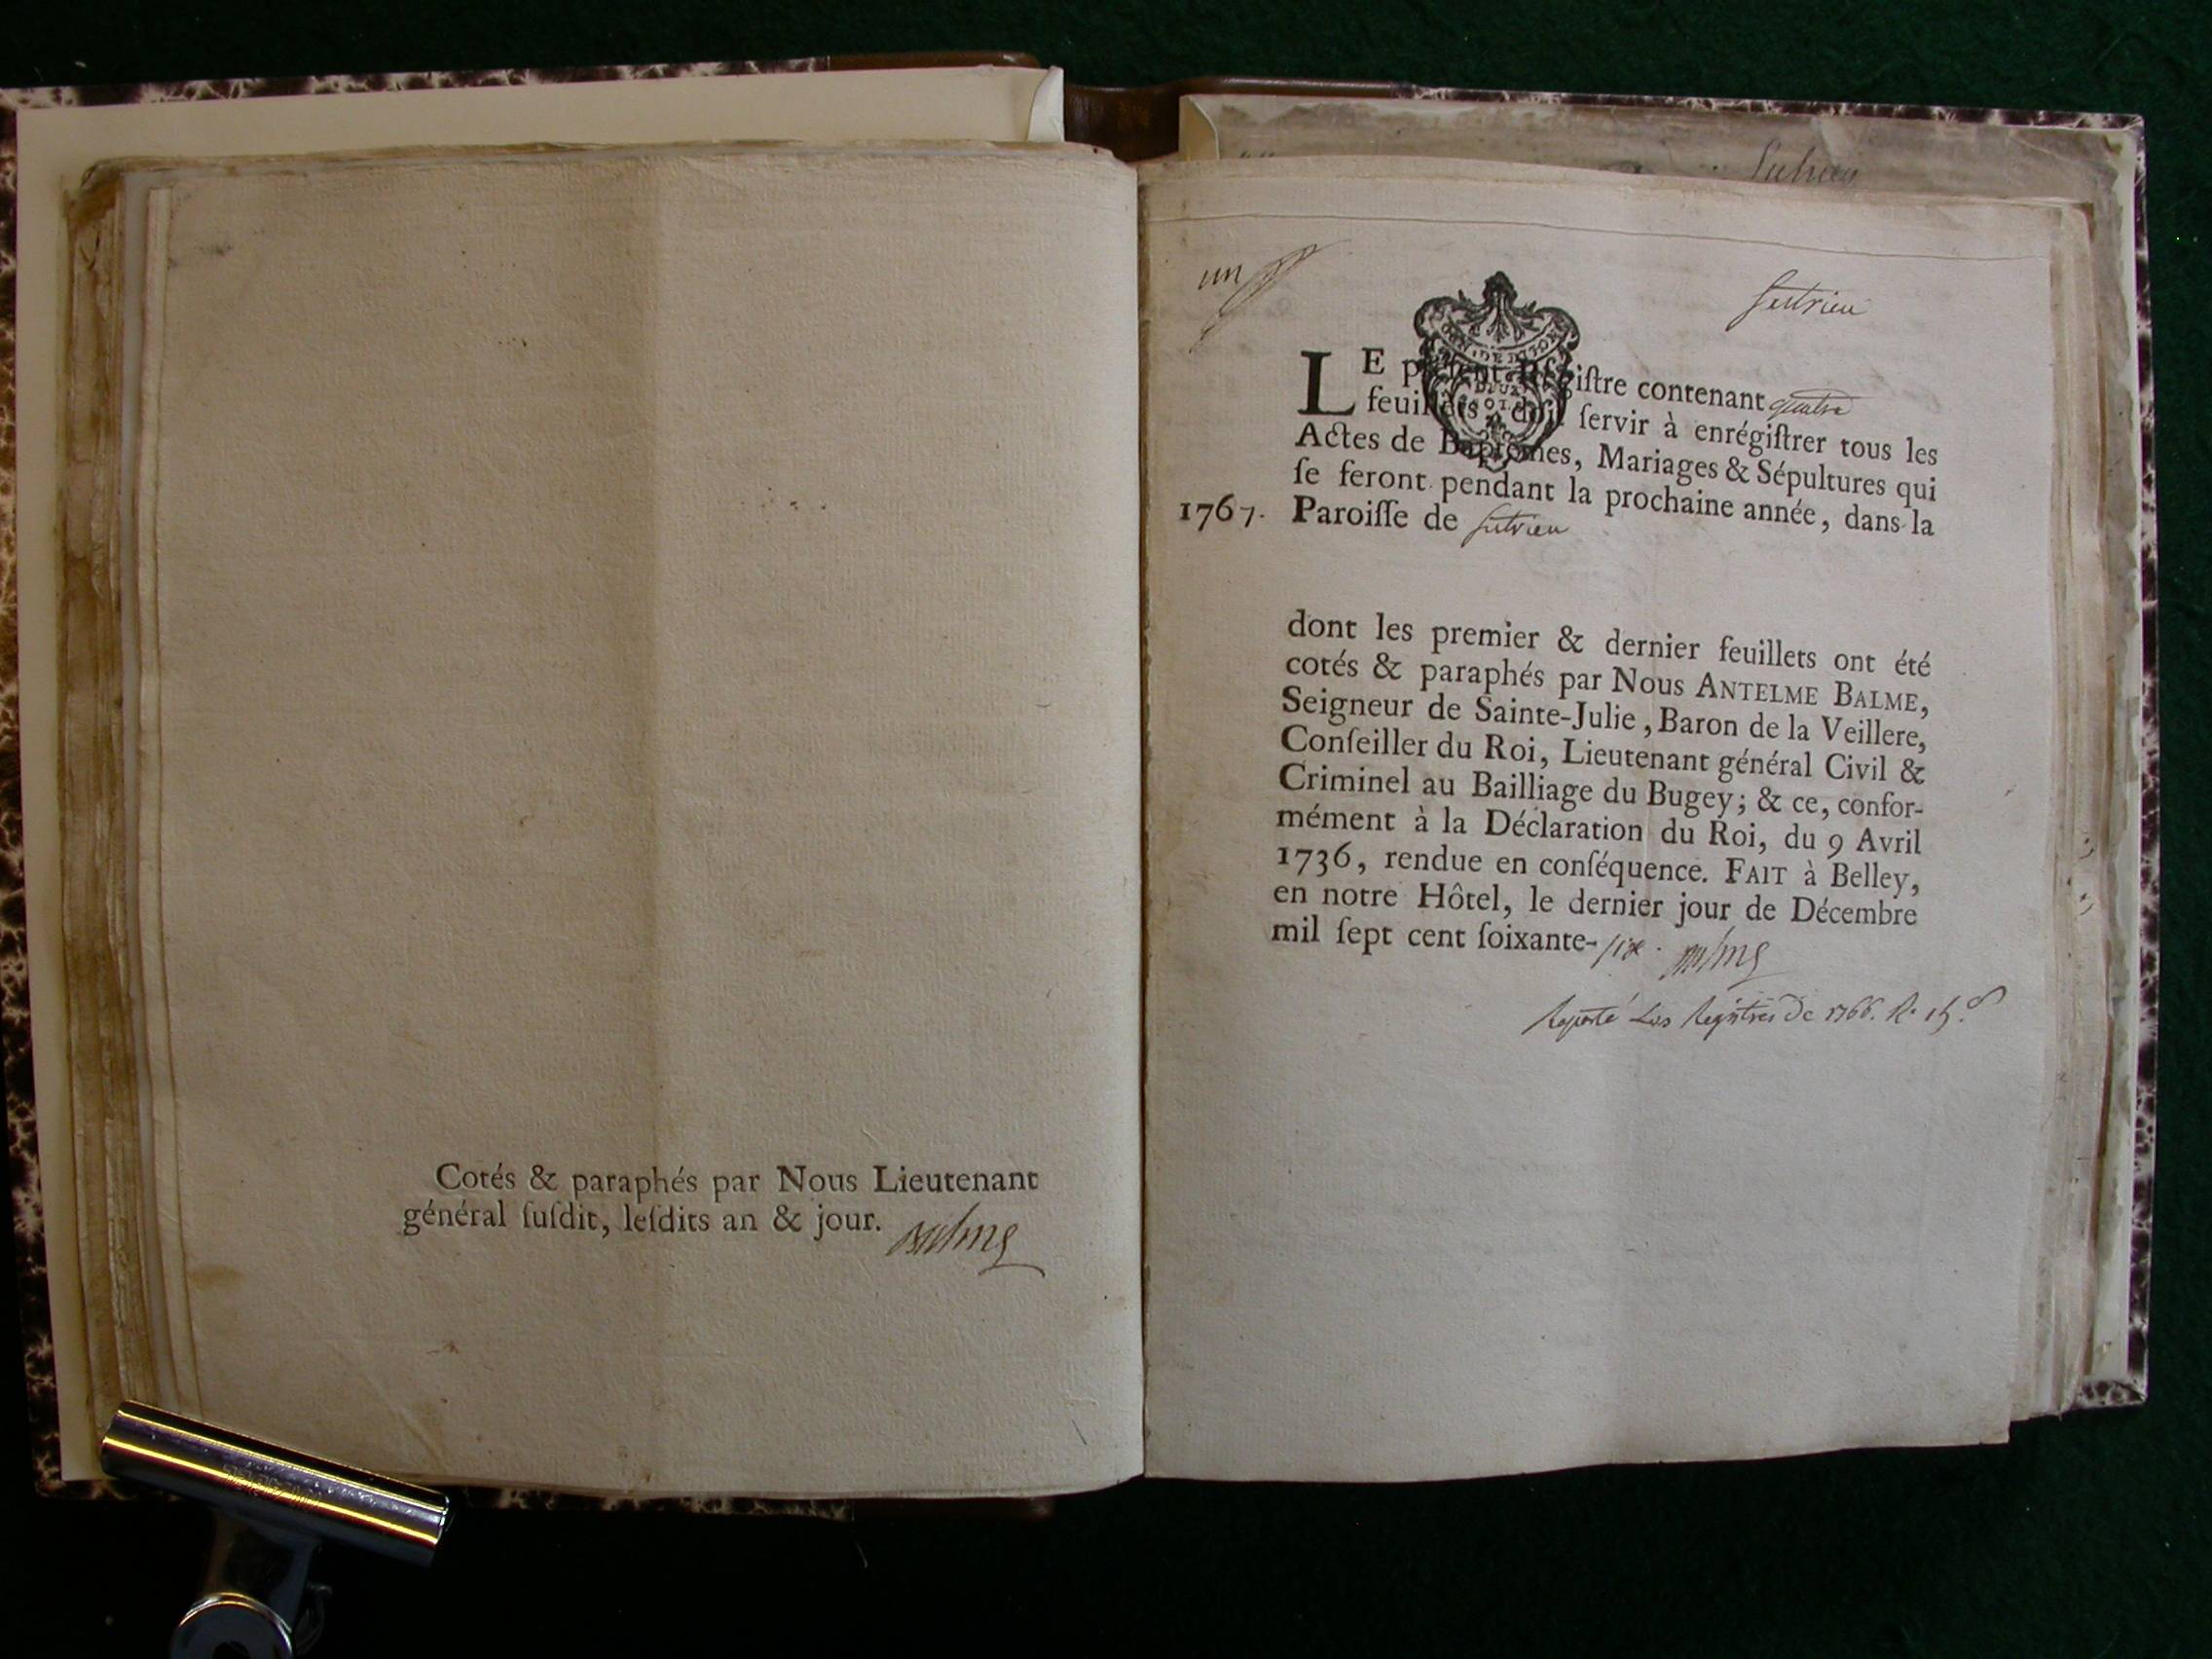 Cotés & paraphés par Nous Lieutenant
général ſuſdit, leſdits an & jour. Balme
Sutrieu
un
Sutrieu
GEN. DE DIJON
DEUX
SOLS
LE préſent Régiſtre contenant quatre
feuillets, doit ſervir à enrégiſtrer tous les
Actes de Baptêmes, Mariages & Sépultures qui
ſe feront pendant la prochaine année, dans la
1767. Paroiſſe de Sutrieu
dont les premier & dernier feuillets ont été
cotés & paraphés par Nous ANTELME BALME,
Seigneur de Sainte-Julie, Baron de la Veillere,
Conſeiller du Roi, Lieutenant général Civil &
Criminel au Bailliage du Bugey; & ce, confor-
mément à la Déclaration du Roi, du 9 Avril
1736, rendue en conſéquence. FAIT à Belley,
en notre Hôtel, le dernier jour de Décembre
mil ſept cent ſoixante-six. Balme
Registres de 1766.